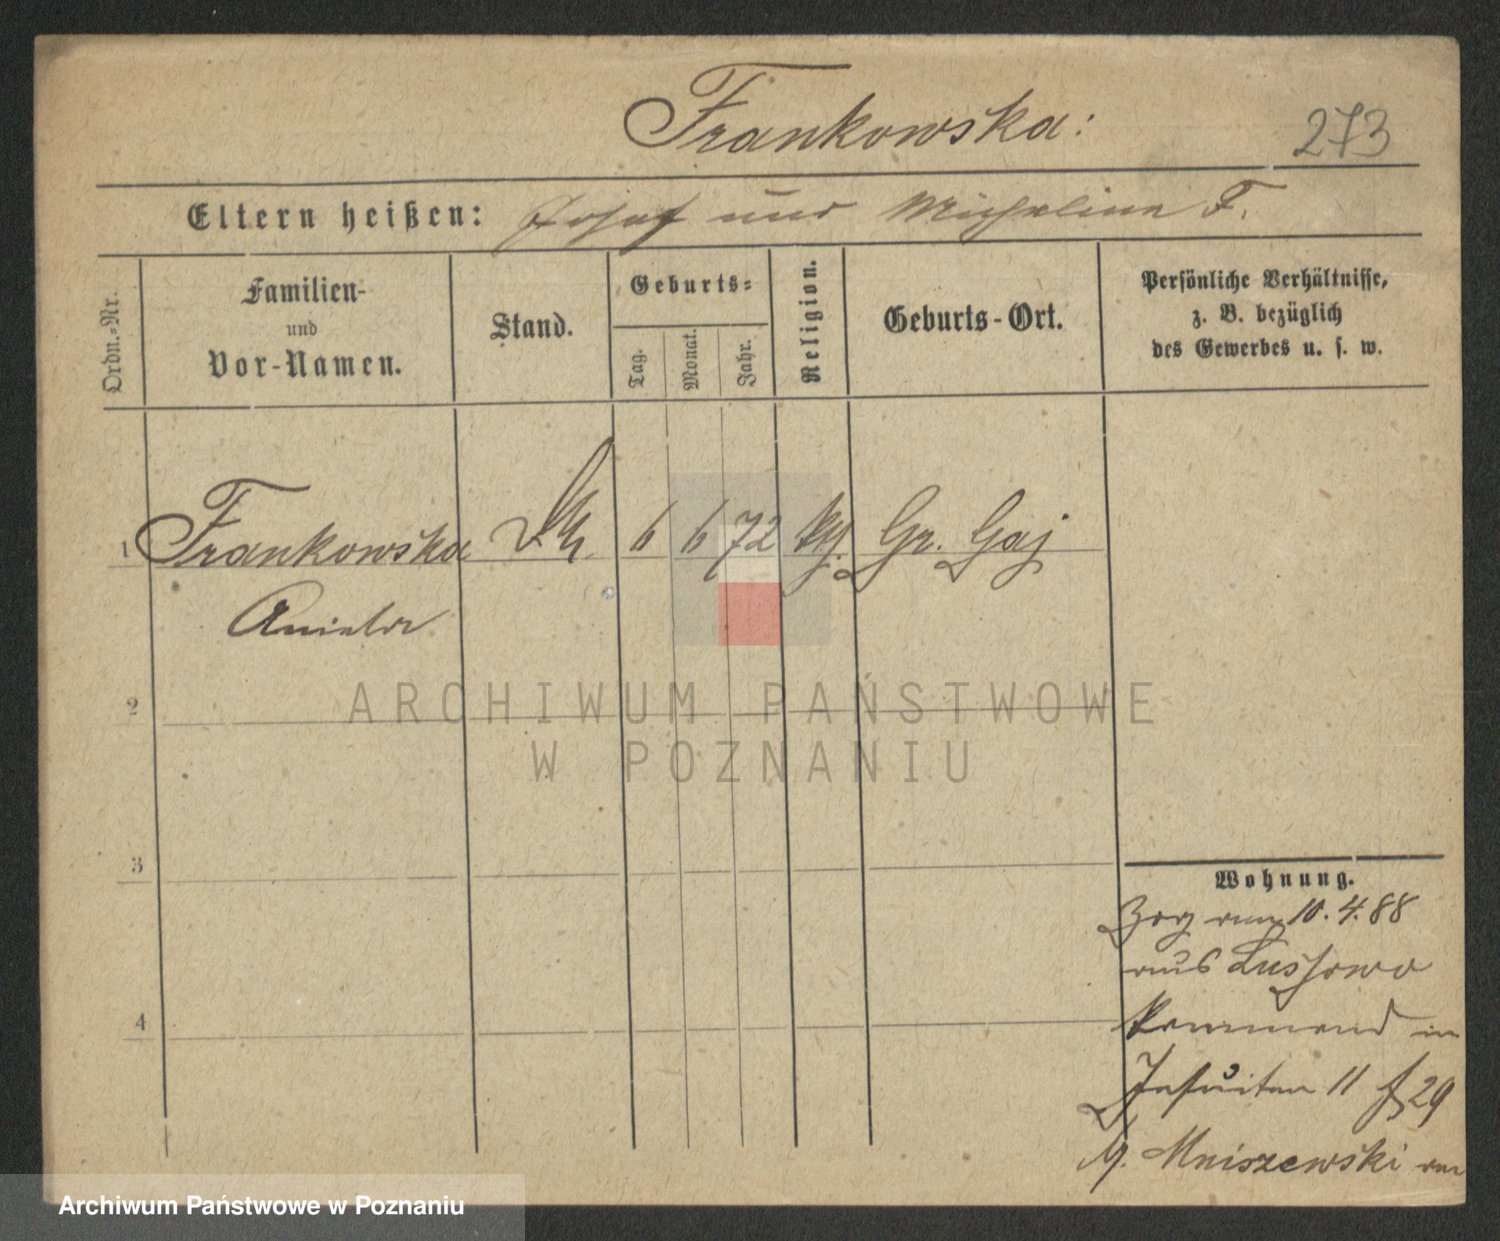 Frankowska:
273
Eltern heißen: Josef und Micheline F.
Ordn.-Nr.
Familien-
und
Vor-Namen.
Stand.
Geburts-
Tag.
Monat.
Jahr.
Religion.
Geburts-Ort.
Persönliche Verhältnisse,
z. B. bezüglich
des Gewerbes u. s. w.
1 Frankowska 6 6 72 Gr. Gaj
Aniela
2
3
4
ARCHIWUM PAŃSTWOWE
W POZNANIU
Wohnung.
Zog am 10.4.88
aus Lussowo
kommend in
Jesuiten 11
Mniszewski an
Archiwum Państwowe w Poznaniu